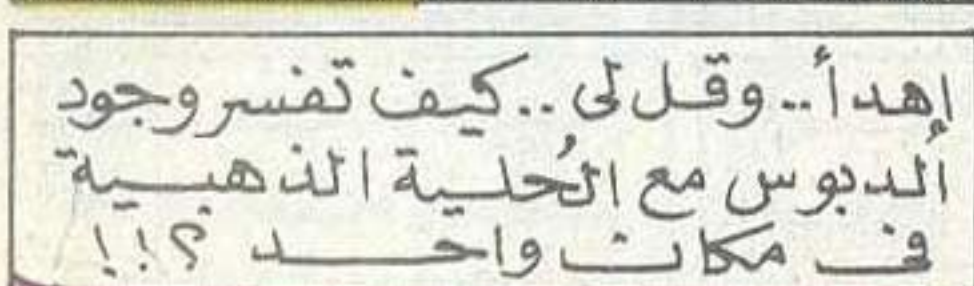 إهدأ.. وقل لى.. كيف تفسر وجود
الدبوس مع الحُلية الذهبية
فى مكان واحد ؟!!